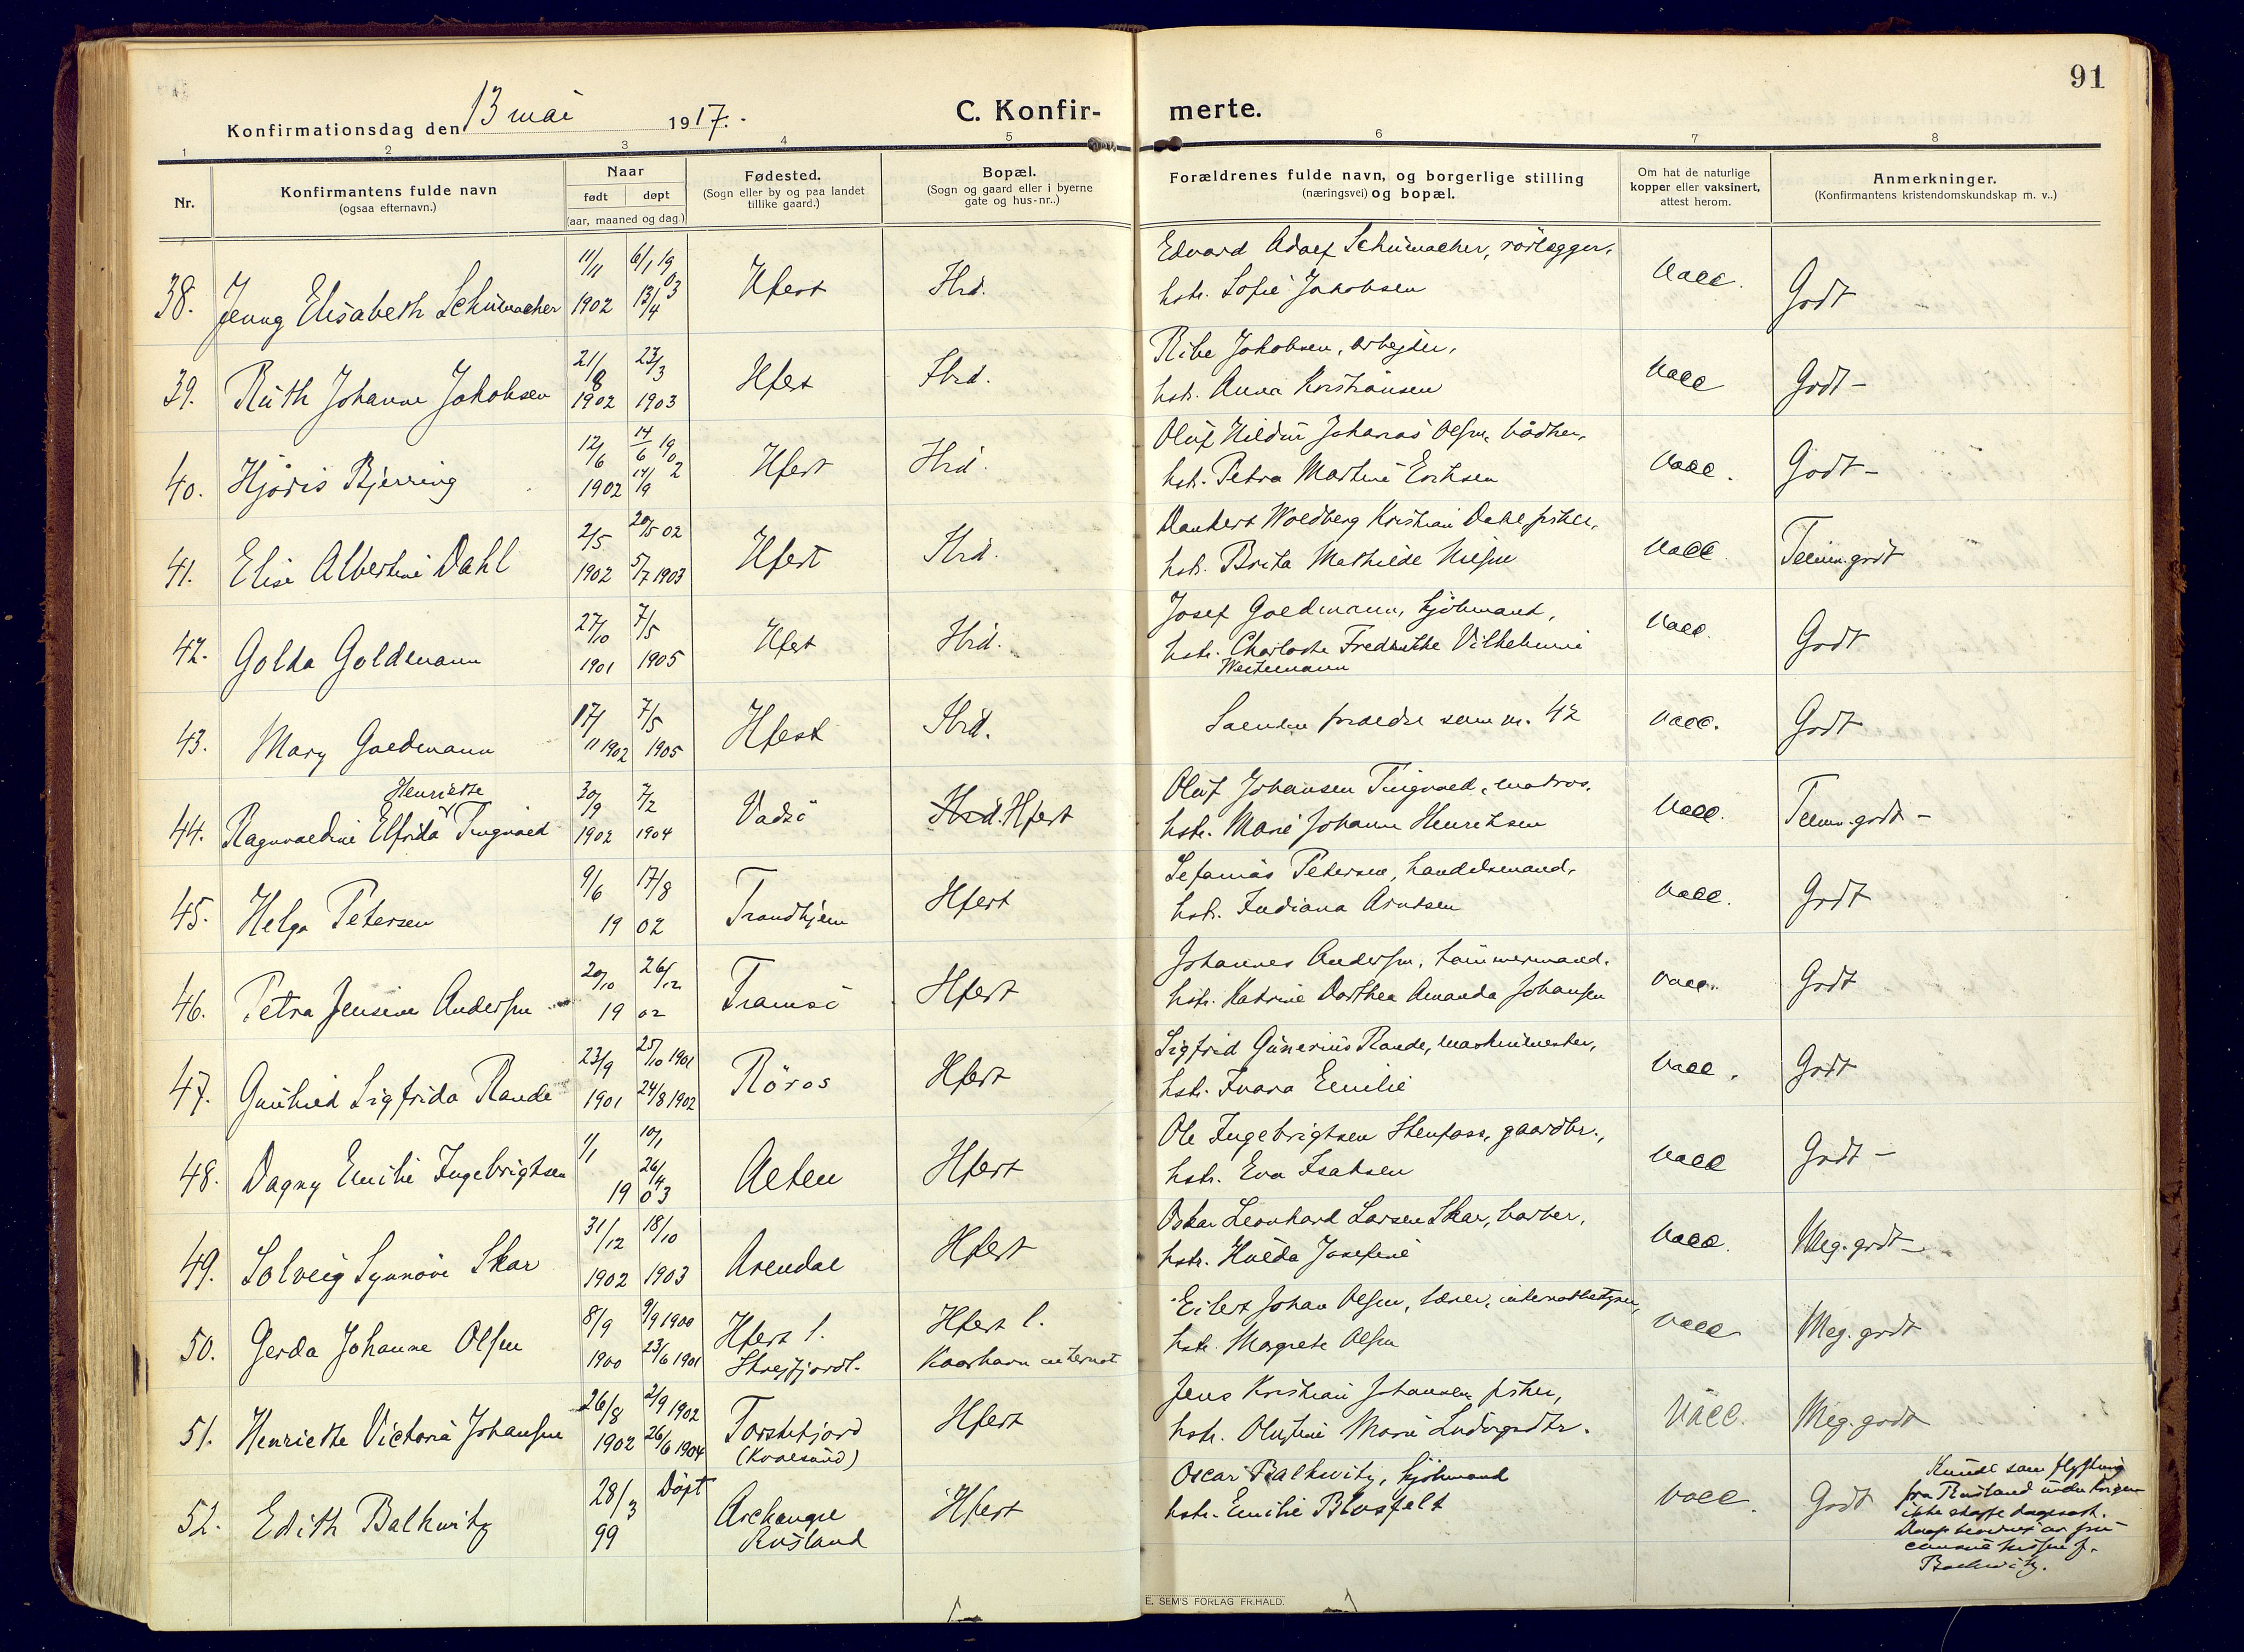 91
Konfirmationsdag den 13 mai 1917.
C. Konfir- merte.
1 2 3 4 5 6 7 8
Nr.
Konfirmantens fulde navn
(ogsaa efternavn.)
Naar
født døpt
(aar, maaned og dag)
Fødested.
(Sogn eller by og paa landet
tillike gaard.)
Bopæl.
(Sogn og gaard eller i byerne
gate og hus-nr..)
Forældrenes fulde navn, og borgerlige stilling
(næringsvei) og bopæl.
Om hat de naturlige
kopper eller vaksinert,
attest herom.
Anmerkninger.
(Konfirmantens kristendomskundskap m. v..)
38. Jenny Elisabeth Schumacher 11/11 1902 6/1 1903 13/4 Hfest Hrd.
Edvard Adolf Schumacher, rörlægger,
hstr. Sofie Jakobsen
Vacc. Godt
39. Ruth Johanne Jakobsen 21/8 1902 23/3 1903 Hfest Hrd.
Ribe Jakobsen, arbejder,
hstr. Anna Kristiansen
Vacc Godt -
40. Hjöris Bjerring 12/6 1902 14/6 1902 Hfest Hrd.
Oluf Hildur Johannes Olsen, bødker,
hstr. Petra Martine Eriksen
Vacc. Godt -
41. Elise Albertine Dahl 2/5 1902 20/5 02 5/7 1903 Hfest Hrd.
Dankert Woldberg Kristian Dahl, fisker,
hstr. Brita Mathilde Nilsen
Vacc Temm. godt
42. Golda Goldmann 27/10 1901 7/5 1905 Hfest Hrd.
Josef Goldmann, Sjömand,
hstr. Charlotte Fredrikke Vilhelmine
Westermann
Vacc. Godt
43. Mary Goldmann 17/11 1902 7/5 1905 Hfest Hrd.
Samme foraeldre som nr. 42
Vacc. Godt
Henriette
44. Ragnvaldine Elfrida Tingvold 30/9 1902 7/2 1904 Vadsö Hrd. Hfest
Oluf Johansen Tingvold, matros,
hstr. Marie Johanne Henriksen
Vacc. Temm. godt -
45. Helga Petersen 9/6 17/8 1902 Trondhjem Hfest
Petersen, handelsmand,
hstr. Indiana Arntsen
Vacc. Godt
46. Petra Jensine Andersen 20/10 26/12 1902 Tromsö Hfest
Johannes Andersen, tömmermand.
hstr. Katrine Dorthea Amanda Johansen
Vacc. Godt
47. Gunhild Sigfrida Rande 23/9 1901 25/10 1901 24/8 1902 Röros Hfest
Sigfrid Gunerius Rande, maskinmester,
hstr. Ivara Emilie
Vacc. Godt
48. Dagny Emilie Ingebrigtsen 1/1 10/1 26/4 1903 Alten Hfest
Ole Ingebrigtsen Stenfoss, gaardbr.,
hstr. Eva Isaksen
Vacc Godt -
49. Solveig Synnöve Skar 31/12 1902 18/10 1903 Arendal Hfest
Oskar Leonhard Larsen Skar, barber,
hstr. Hulda Josefine
Vacc. Meg. godt -
50. Gerda Johanne Olsen 8/9 1900 9/9 1900 23/6 1901 Hfest l. Hfest l.
Kaarhavn internat
Eilert Johan Olsen, lærer, internatbestyrer,
hstr. Magrete Olsen
Vacc Meg. godt
51. Henriette Victoria Johansen 26/8 1902 2/9 1902 26/6 1904 Torskefjord Hfest
(Kvalsund)
Jens Kristian Johansen, fisker,
hstr. Olufine Marie Ludvigsdtr.
Vacc. Meg. godt
52. Edith Balkwitz 28/3 99 Döpt Archangel Hfest
Rusland
Oscar Balkwitz, Sjömand
hstr. Emilie Blosfelt
Vacc. Godt
Kunde som flygtning
fra Rusland under krigen
ikke skaffe daapsatt.
Balkwitz.
E. SEM'S FORLAG FR.HALD.